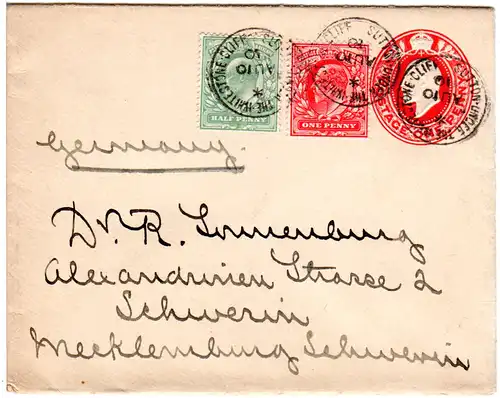 HALF PENNY
ONE PENNY
POSTAGE ONE PENNY
SUTTON UNDER THE WHITESTONE CLIFF
AU 10
10
Germany.
Dr. R. Sonnenburg
Alexandrinen Strasse 2
Schwerin
Mecklenburg Schwerin